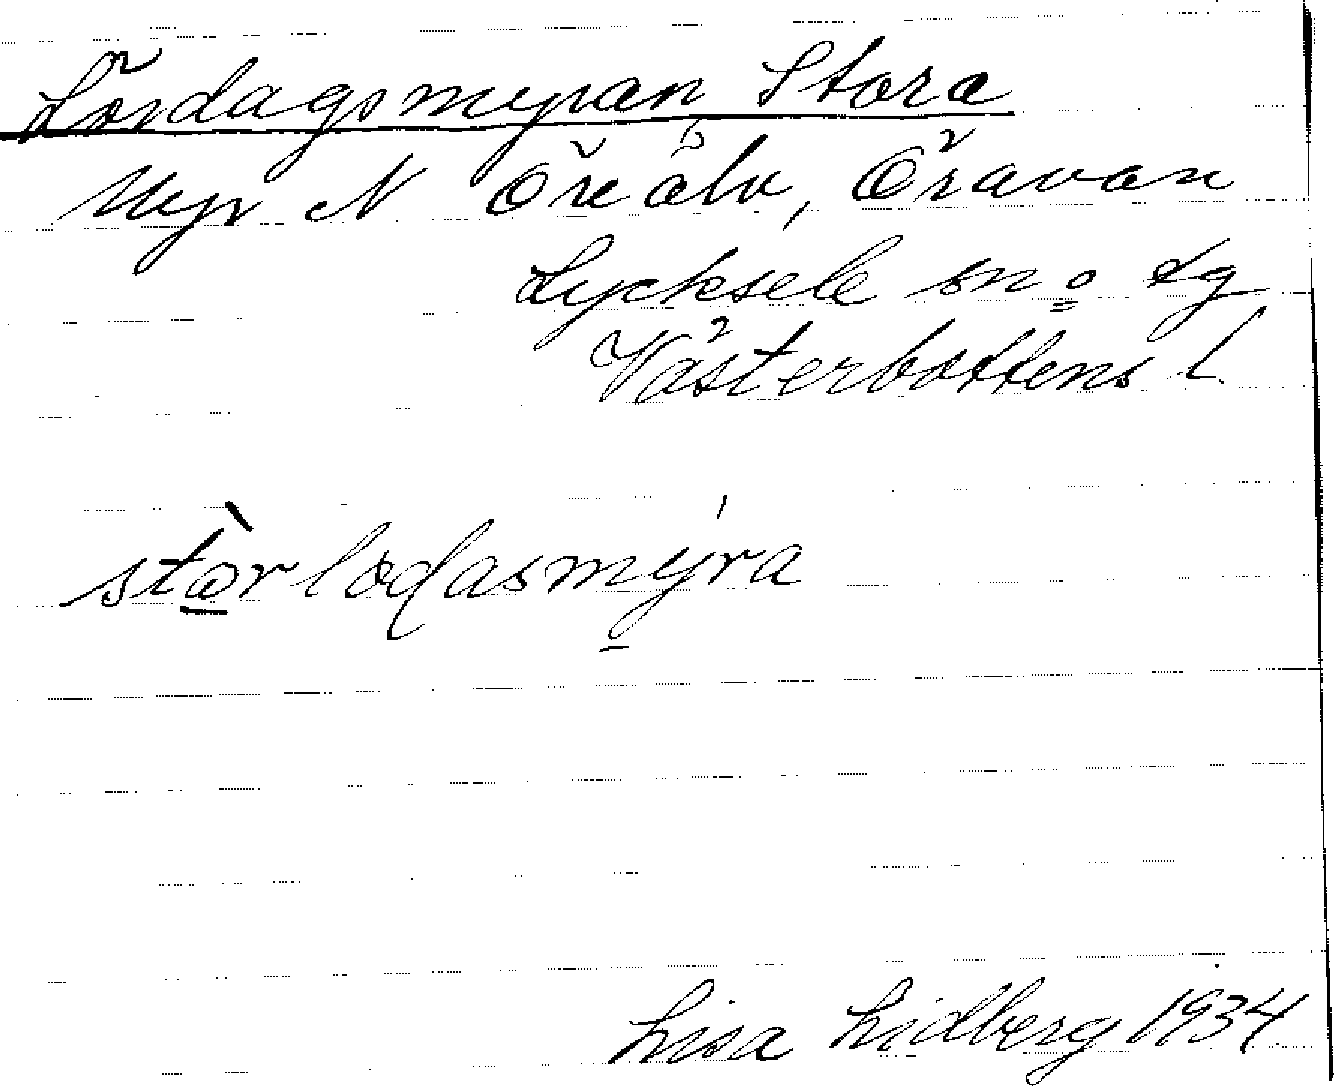 Lördagsmyran, Stora
Myr N Öreälv, Öravan
Lycksele sn o. lg
Västerbottens l
stòrlodasmýra
Lisa Lidberg 1934